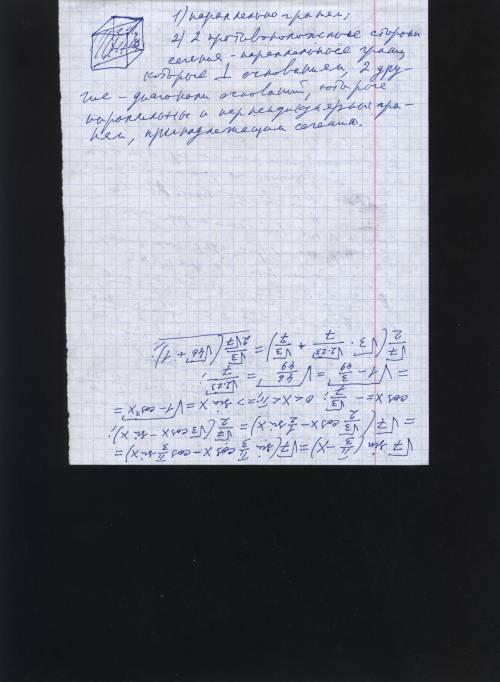 1) параллельно граней;
2) 2 противоположные стороны
сечения - параллельные граням
которые ⊥ основаниям, 2 дру-
гие - диагонали оснований, которые
параллельны и перпендикулярны гра-
ням, принадлежащим сечению.
√7 sin(π/3 - x) = √7(sin π/3 cos x - cos π/3 sin x) =
= √7(√3/2 cos x - 1/2 sin x) = √7/2(√3 cos x - sin x);
cos x = - √3/7; 0 < x < π; => sin x = √1-cos²x =
= √1 - 3/49 = √46/49 = √2·23/7;
√7/2(√3 · √2·23/7 + √3/7) = √3/2√7(√46 + 1);